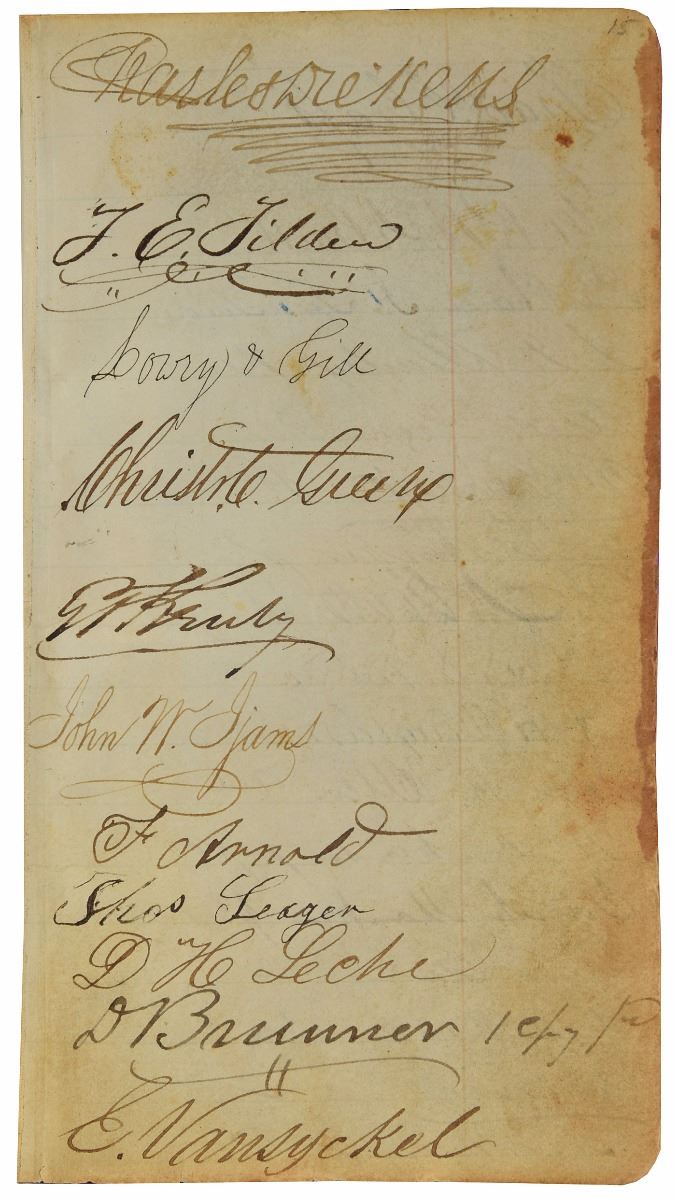 15
Charles Dickens
T. E. Tilden
Lowry & Gill
Christr. C. Greene
John W. Ijams
F Arnold
Thos Seager
D H Leche
D Brunner 1 copy pd
E. Vansyckel